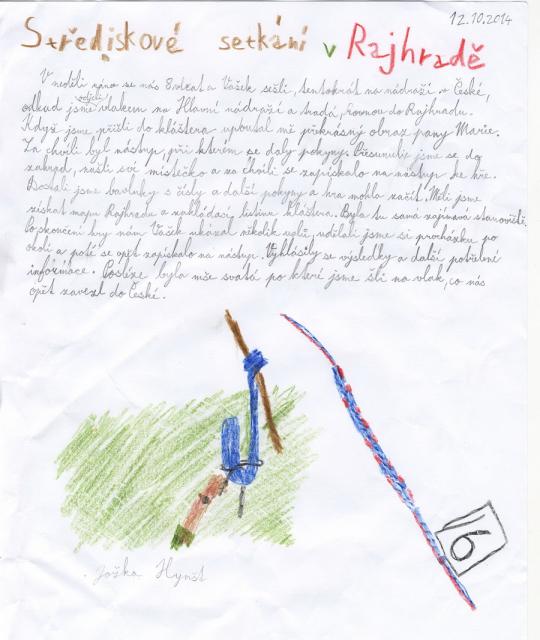 12.10.2014
Střediskové setkání v Rajhradě
V neděli ráno se nás 8 vlčat a Vašek sešli, tentokrát na nádraží v České,
odkud jsme odjeli vlakem na Hlavní nádraží a hned, rovnou do Rajhradu.
Když jsme přišli do kláštera upoutal mě překrásný obraz pany Marie.
Za chvíli byl nástup, při kterém se daly pokyny. Přesunuli jsme se do
zahrad, našli své místečko a za chvíli se zapískalo na nástup ke hře.
Dostali jsme bavlnky s čísly a další pokyny a hra mohla začít. Měli jsme
získat mapu Rajhradu a nakládací listinu kláštera. Byla tu samá zajímavá stanoviště.
Po skončení hry nám Vašek ukázal několik uzlů, udělali jsme si procházku po
okolí a poté se opět zapískalo na nástup. Vyhlásily se výsledky a další potřebné
informace. Posléze byla mše svatá po které jsme šli na vlak, co nás
opět zavezl do České.
16
Jožka Hynšt